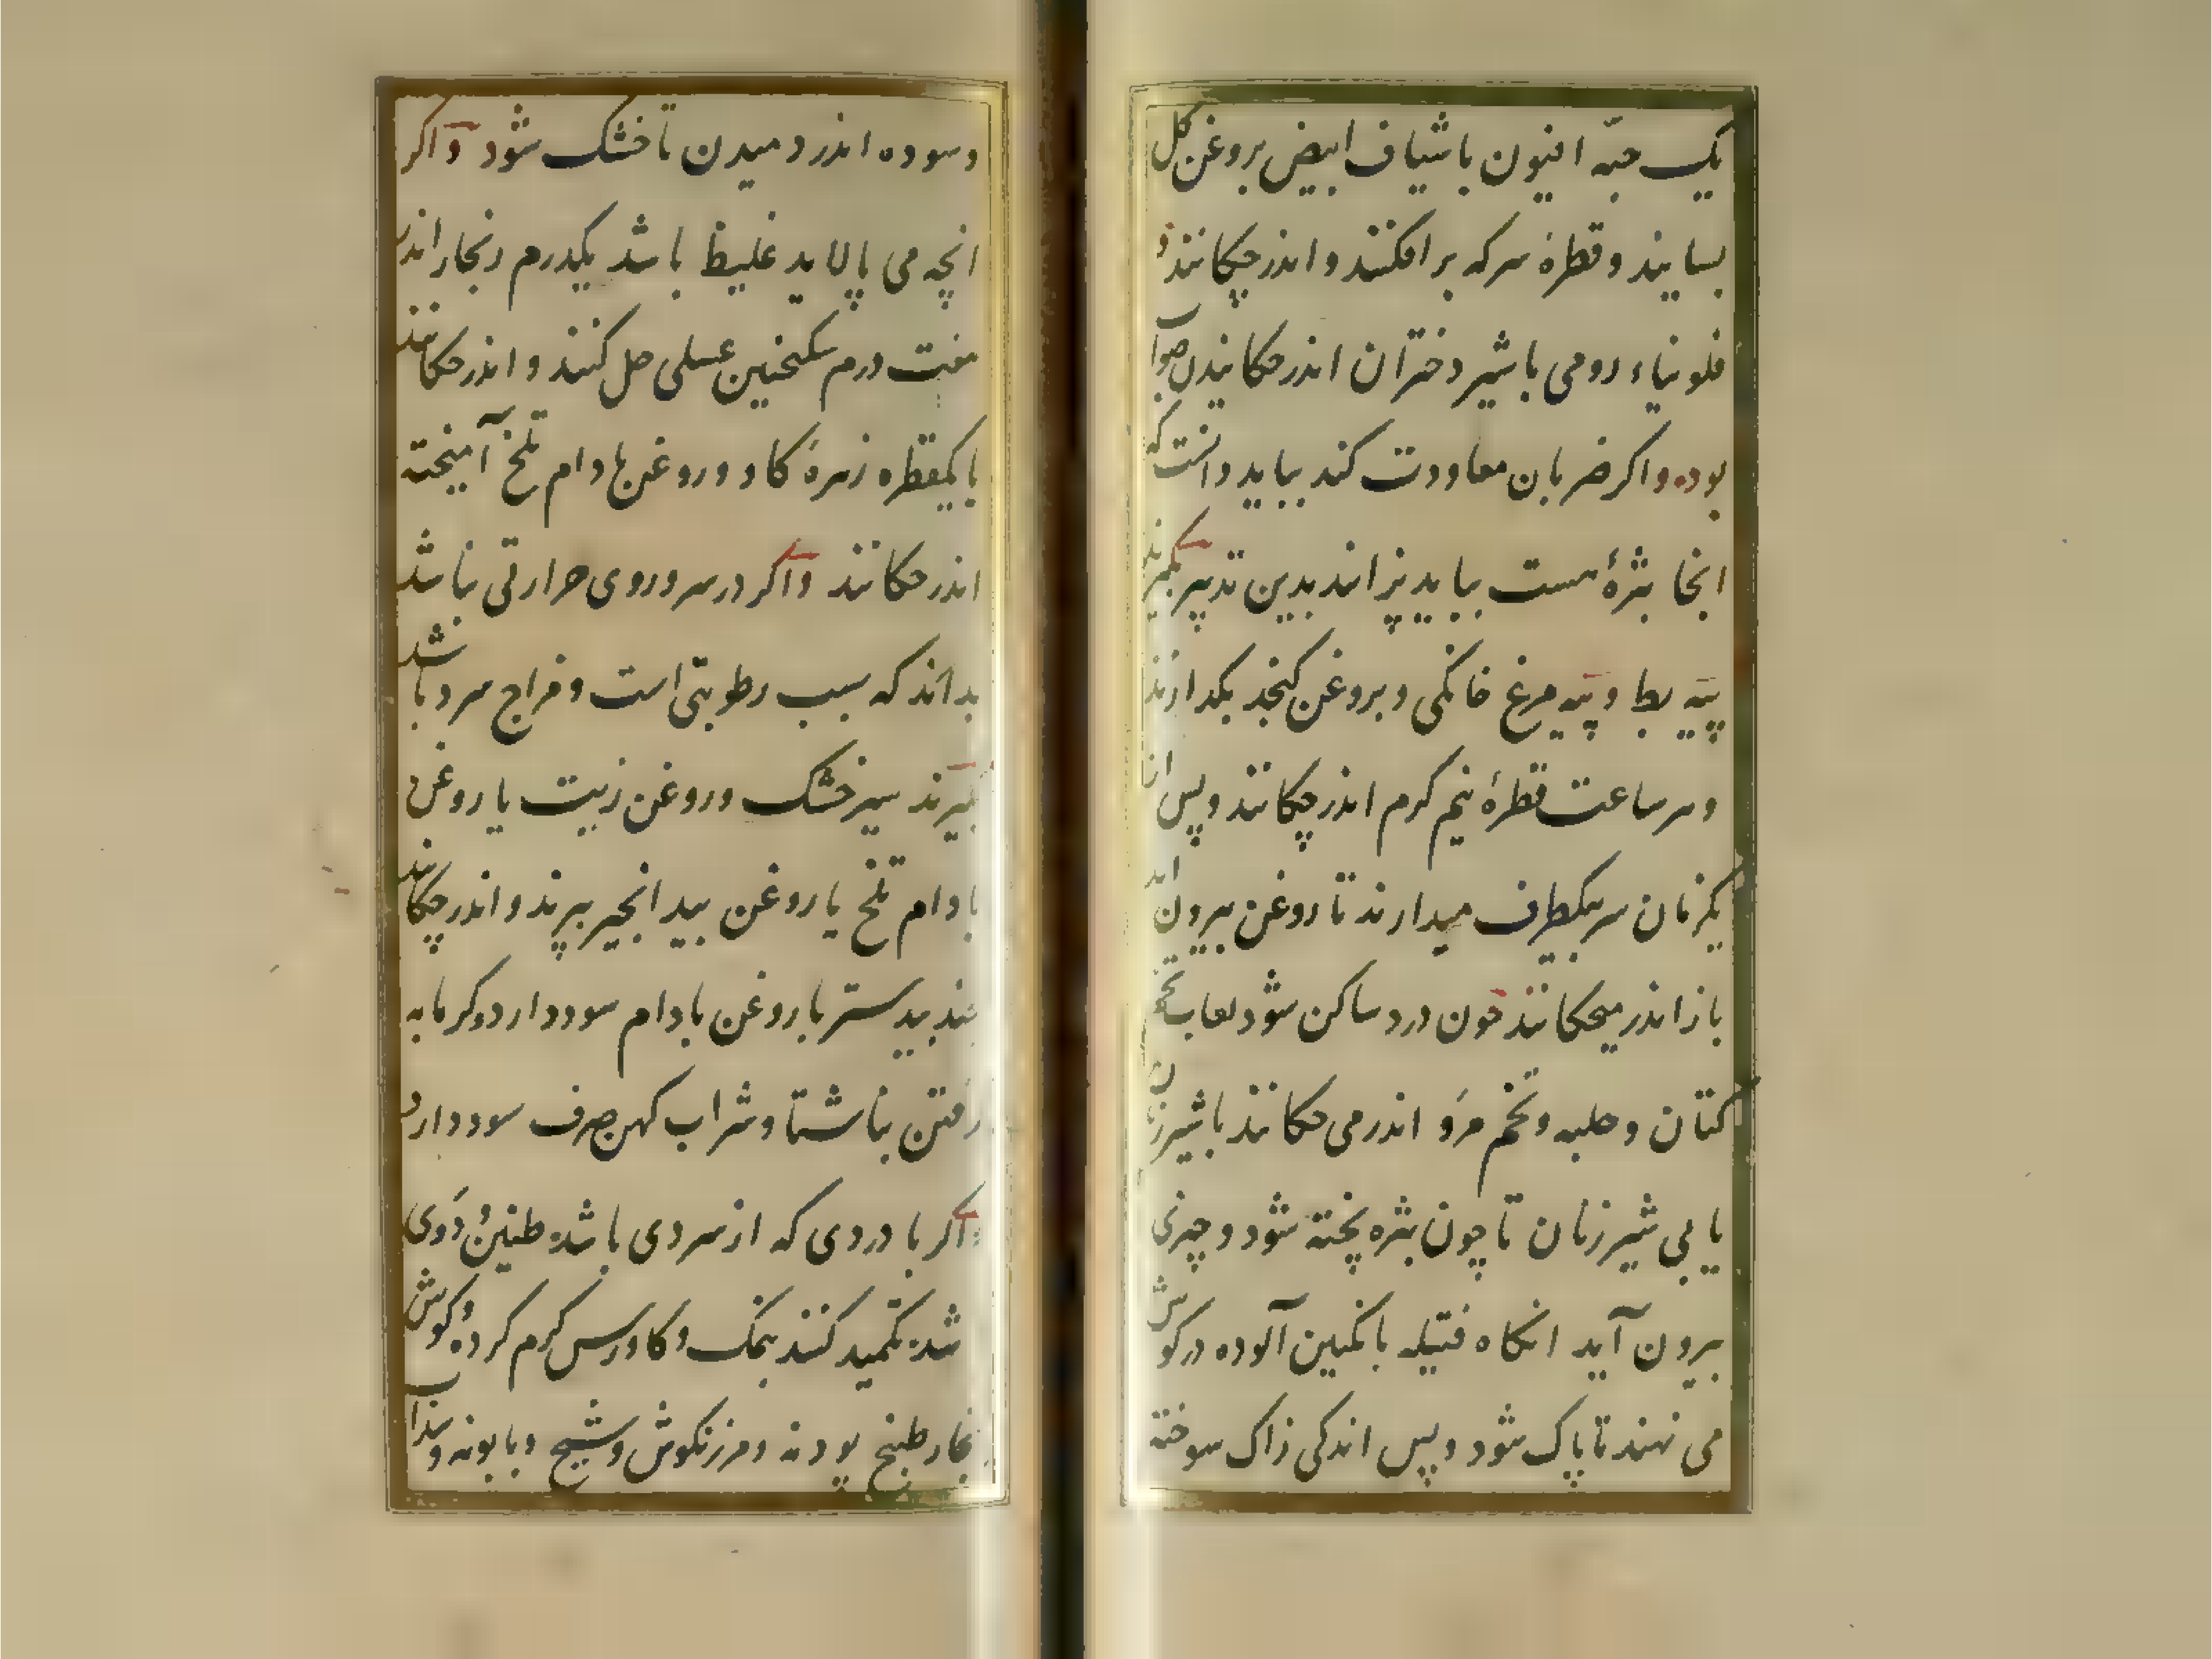 یک حبّه افیون با شیاف ابیض بروغن کل
بسایند و قطرهٔ سرکه برافکنند و اندر چکانند و
فلونیاء رومی با شیر دختران اندر حکانیدن صواب
بوده و اکر ضربان معاودت کند بباید دانست که
انجا بثرهٔ هست بباید پزاند بدین تدبیر بکیرند
پیه بط و پیه مرغ خانکی و بروغن کنجد بکدازند
و هر ساعت قطرهٔ نیم کرم اندر چکانند و پس از
یکزمان سر بیکطرف میدارند تا روغن بیرون اید
باز اندر میحکانند حون درد ساکن شود لعاب تخم
کتان و حلبه و تخم مرَو اندر می حکانند با شیر زنان
یا بی شیر زنان تا چون بثره پخته شود و چیزی
بیرون آید انکاه فتیله بانکبین آلوده در کوش
می نهند تا پاک شود و پس اندکی زاک سوخته
و سوده اندر دمیدن تا خشک شود و اکر
انچه می پالاید غلیظ باشد یکدرم زنجار اندر
هفت درم سکنجبین عسلی حل کنند و اندر حکانند
یا یکقطره زهرهٔ کاو و روغن بادام تلخ آمیخته
اندر حکانند و اکر در سر و روی حرارتی نباشد
بدانند که سبب رطوبتی است و مزاج سرد باشد
بکیرند سیر خشک و روغن زیت یا روغن
بادام تلخ یا روغن بید انجیر بپزند و اندر چکانند
جند بیدستر با روغن بادام سود دارد و کرمابه
رفتن بناشتا و شراب کهن صرف سود دارد
و اکر با دردی که از سردی باشد طنین و دَوی
شد تکمید کنند بنمک و کاورس کرم کرده و کوش
بخار طبیخ پودنه و مرزنکوش و شیح و بابونه و سداب